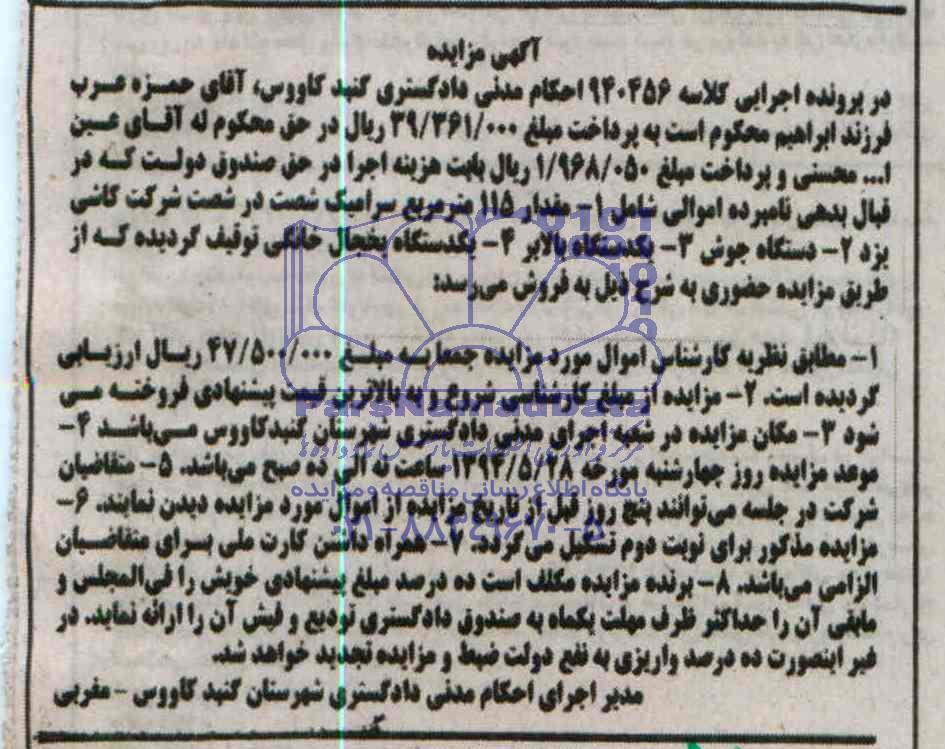 آگهی مزایده
در پرونده اجرایی کلاسه ۹۴۰۴۵۶ احکام مدنی دادگستری گنبد کاووس، آقای حمزه عرب
فرزند ابراهیم محکوم است به پرداخت مبلغ ۳۹/۳۶۱/۰۰۰ ریال در حق محکوم له آقای عین
ا... محسنی و پرداخت مبلغ ۱/۹۶۸/۰۵۰ ریال بابت هزینه اجرا در حق صندوق دولت که در
قبال بدهی نامبرده اموالی شامل ۱- مقدار ۱۱۵ مترمربع سرامیک شصت در شصت شرکت کاشی
یزد ۲- دستگاه جوش ۳- یکدستگاه بالابر ۴- یکدستگاه یخچال خانگی توقیف گردیده که از
طریق مزایده حضوری به شرح ذیل به فروش می‌رسد:
۱- مطابق نظریه کارشناس اموال مورد مزایده جمعا به مبلغ ۴۷/۵۰۰/۰۰۰ ریال ارزیابی
گردیده است. ۲- مزایده از مبلغ کارشناسی شروع و به بالاترین قیمت پیشنهادی فروخته می
شود ۳- مکان مزایده در شعبه اجرای مدنی دادگستری شهرستان گنبدکاووس می‌باشد ۴-
موعد مزایده روز چهارشنبه مورخه ۱۳۹۴/۵/۲۸ ساعت نه الی ده صبح می‌باشد. ۵- متقاضیان
شرکت در جلسه می‌توانند پنج روز قبل از تاریخ مزایده از اموال مورد مزایده دیدن نمایند. ۶-
مزایده مذکور برای نوبت دوم تشکیل می‌گردد. ۷- همراه داشتن کارت ملی برای متقاضیان
الزامی می‌باشد. ۸- برنده مزایده مکلف است ده درصد مبلغ پیشنهادی خویش را فی‌المجلس و
مابقی آن را حداکثر ظرف مهلت یکماه به صندوق دادگستری تودیع و فیش آن را ارائه نماید. در
غیر اینصورت ده درصد واریزی به نفع دولت ضبط و مزایده تجدید خواهد شد.
مدیر اجرای احکام مدنی دادگستری شهرستان گنبد کاووس - مغربی
ParsNamadData
پایگاه اطلاع رسانی مناقصه و مزایده
۰۲۱-۸۸۳۴۹۶۷۰-۵